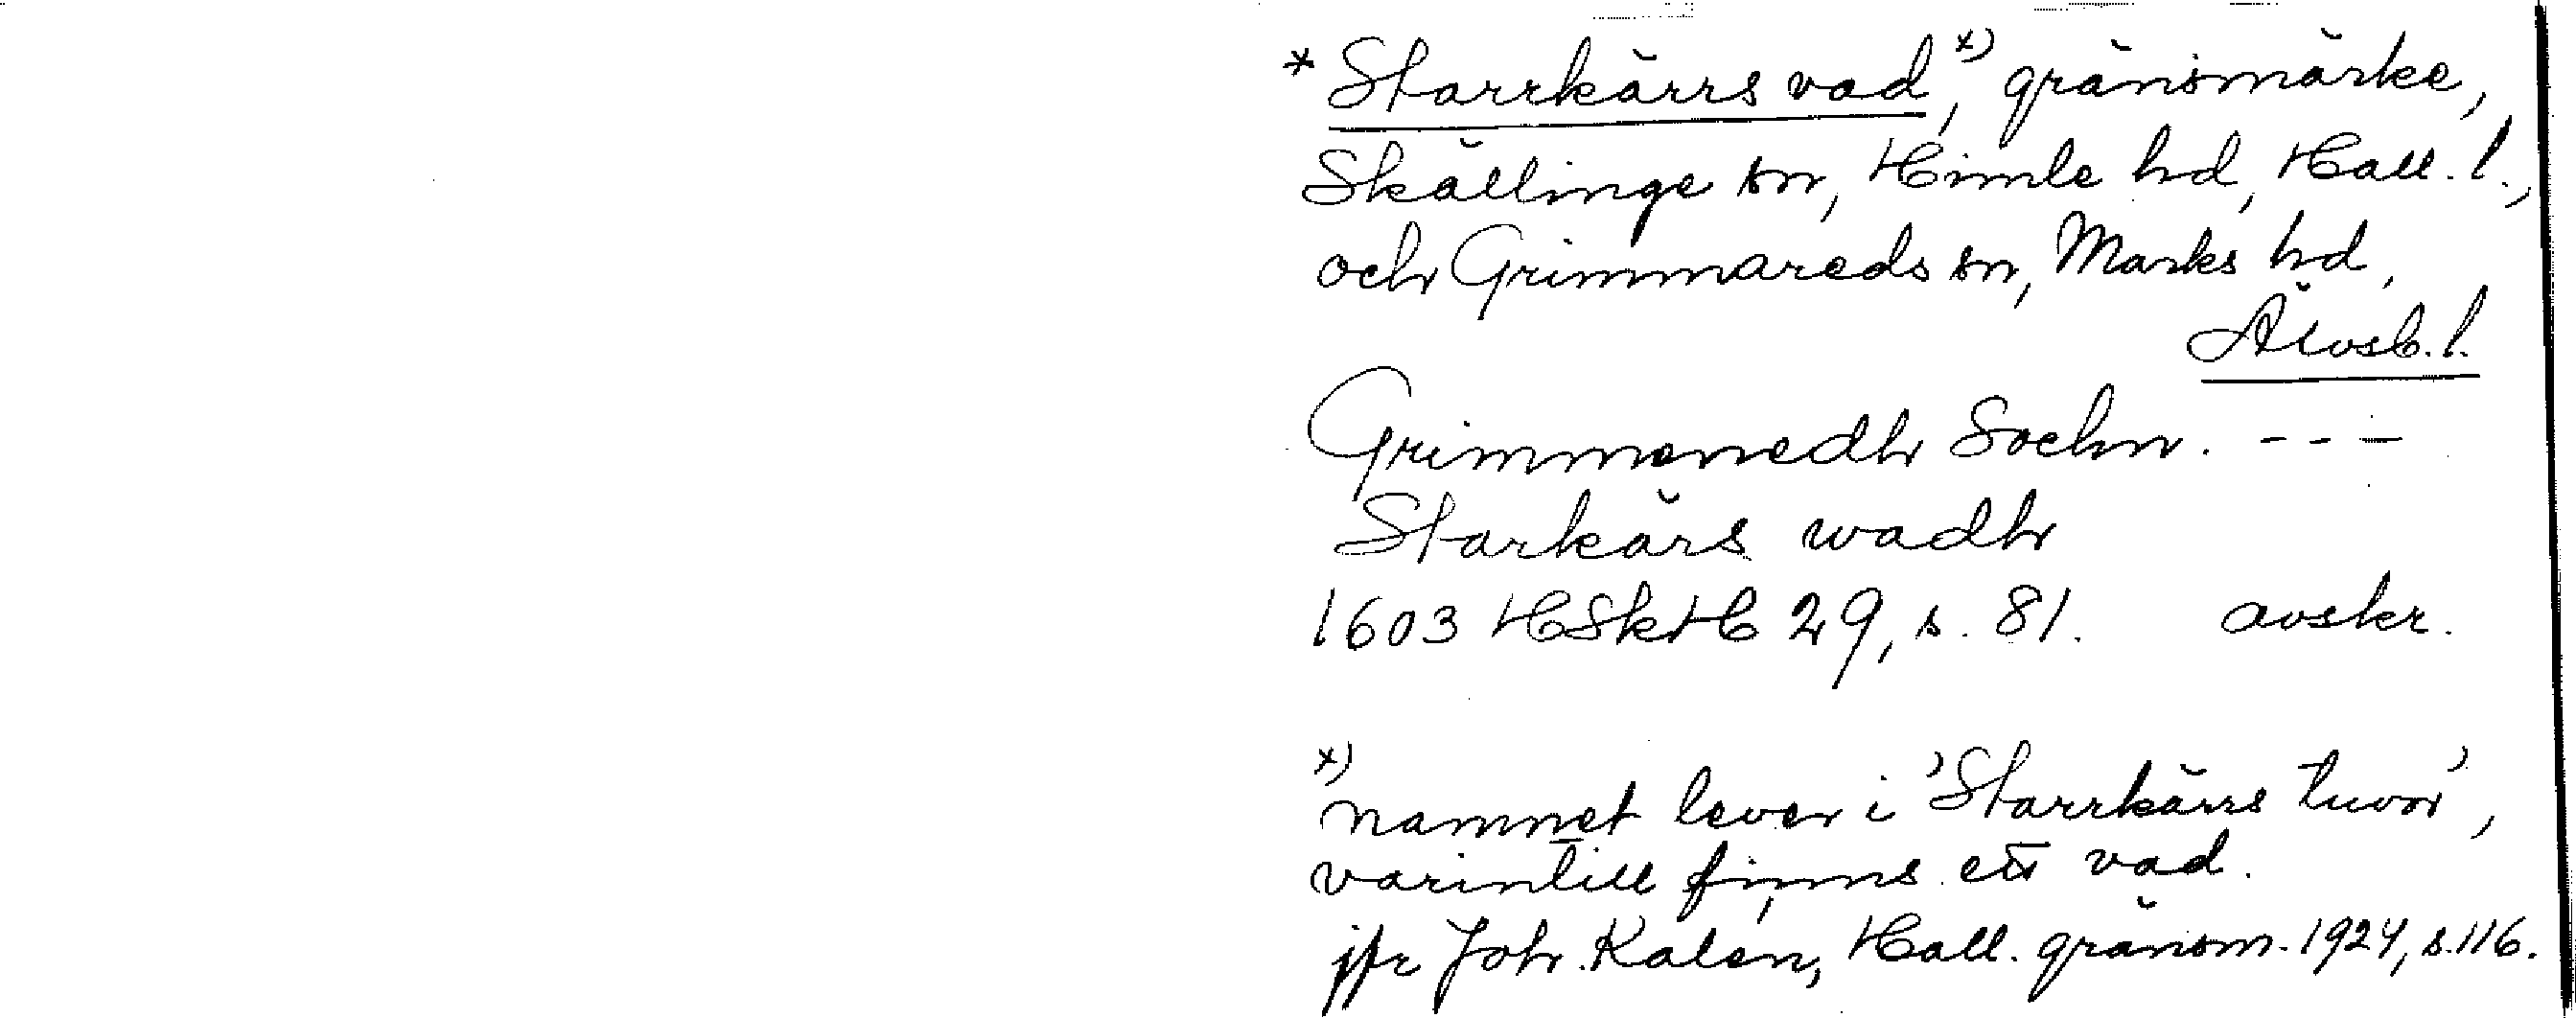 * Starrkärrs vad x), gränsmärke,
Skällinge sn, Himle hd, Hall. l.,
och Grimmareds sn, Marks hd,
Älvsb. l.
Grimmenedh Sochn. - - -
Starkärs wadh
1603 HSkH 29, s. 81. avskr.
x)
namnet lever i 'Starrkärrs tuvor',
varintill finns ett vad.
jfr Joh. Kalén, Hall. gränsm. 1924, s. 116.